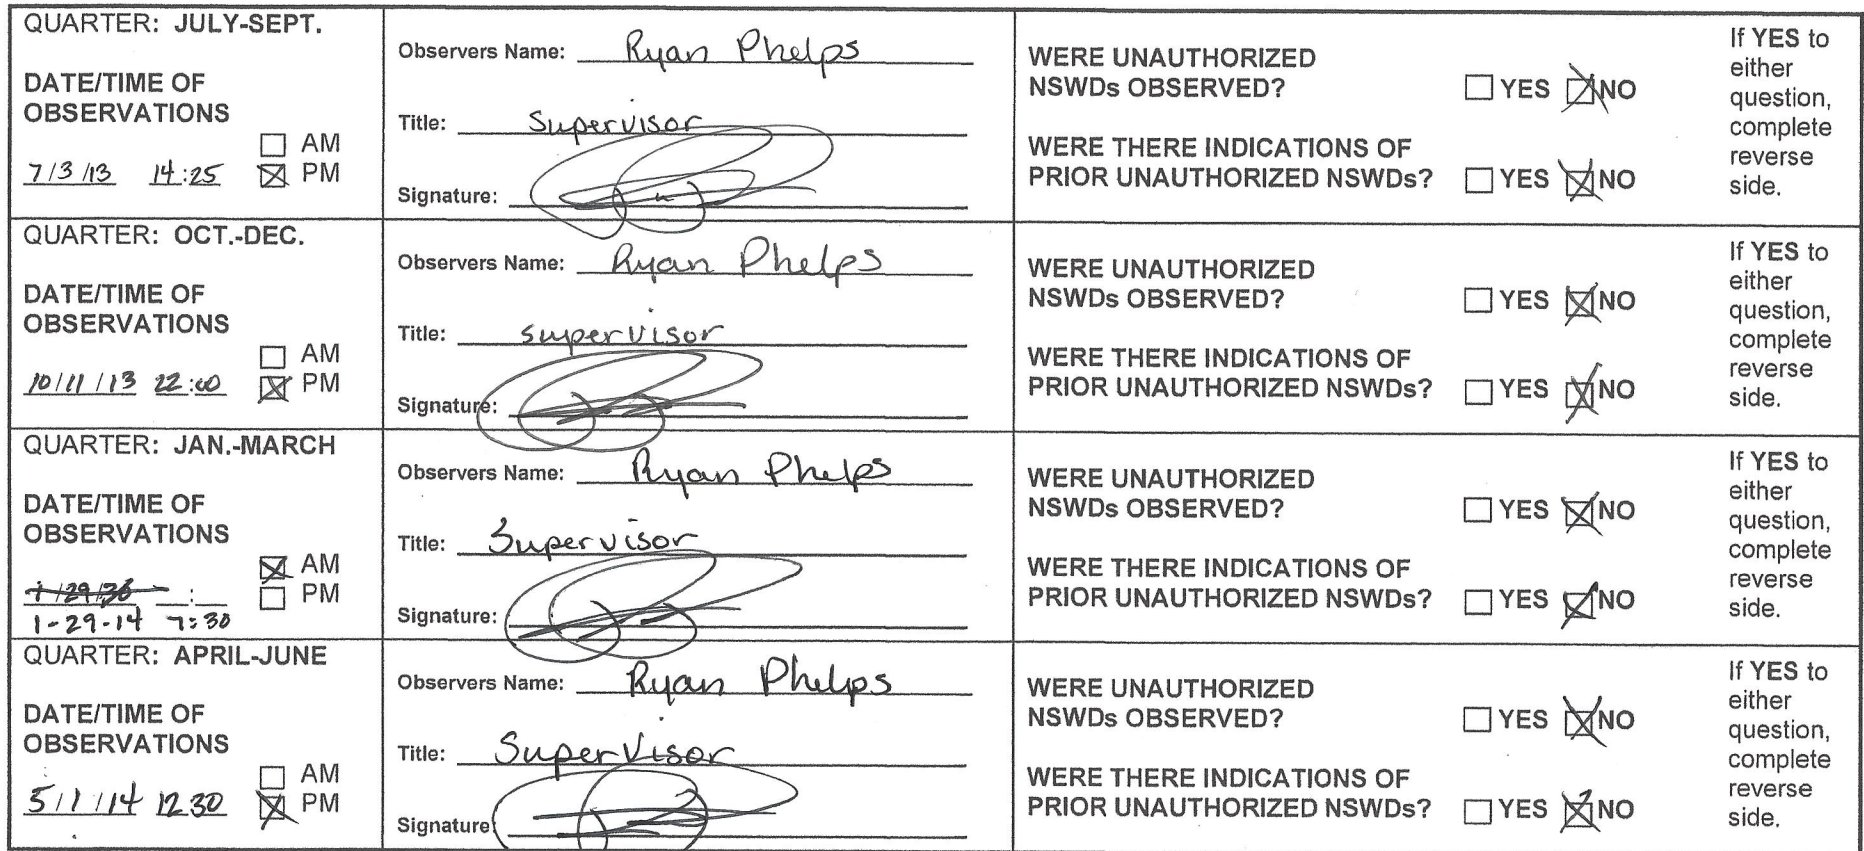 QUARTER: JULY-SEPT.
DATE/TIME OF
OBSERVATIONS
AM
7/3/13 14:25 PM
Observers Name: Ryan Phelps
Title: Supervisor
Signature:
WERE UNAUTHORIZED
NSWDs OBSERVED? YES NO
WERE THERE INDICATIONS OF
PRIOR UNAUTHORIZED NSWDs? YES NO
If YES to
either
question,
complete
reverse
side.
QUARTER: OCT.-DEC.
DATE/TIME OF
OBSERVATIONS
AM
10/11/13 22:00 PM
Observers Name: Ryan Phelps
Title: supervisor
Signature:
WERE UNAUTHORIZED
NSWDs OBSERVED? YES NO
WERE THERE INDICATIONS OF
PRIOR UNAUTHORIZED NSWDs? YES NO
If YES to
either
question,
complete
reverse
side.
QUARTER: JAN.-MARCH
DATE/TIME OF
OBSERVATIONS
AM
PM
1-29-14 7:30
Observers Name: Ryan Phelps
Title: Supervisor
Signature:
WERE UNAUTHORIZED
NSWDs OBSERVED? YES NO
WERE THERE INDICATIONS OF
PRIOR UNAUTHORIZED NSWDs? YES NO
If YES to
either
question,
complete
reverse
side.
QUARTER: APRIL-JUNE
DATE/TIME OF
OBSERVATIONS
AM
5/1/14 12 30 PM
Observers Name: Ryan Phelps
Title: Supervisor
Signature:
WERE UNAUTHORIZED
NSWDs OBSERVED? YES NO
WERE THERE INDICATIONS OF
PRIOR UNAUTHORIZED NSWDs? YES NO
If YES to
either
question,
complete
reverse
side.